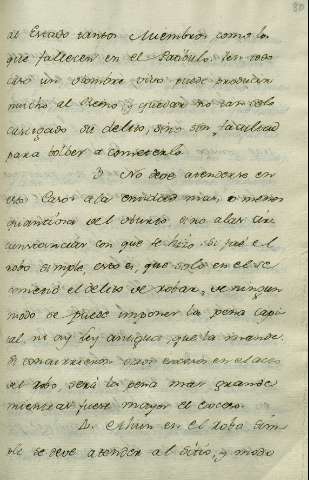 80
al Estado tantos Miembros como los
que fallecen en el Patíbulo. En todo
caso un hombre vivo puede producir
mucho al Reino, y quedar no tan solo
castigado su delito, sino sin facultad
para bolber a cometerlo.
3. No deve atenderse en
tres Casos a la entidad mas, o menos
quantiosa del Hurto, sino a las Cir
cunstancias con que se hizo. Si fue el
robo simple, esto es, que solo en el se
cometió el delito de robar, de ningun
modo se puede imponer la pena capi
tal, ni ay ley antigua, que la mande.
Si concurrieron otros excesos en el acto
del robo, será la pena mas grande
mientras fuese mayor el exceso.
4. Aun en el robo sim
ple se deve atender al sitio, y modo